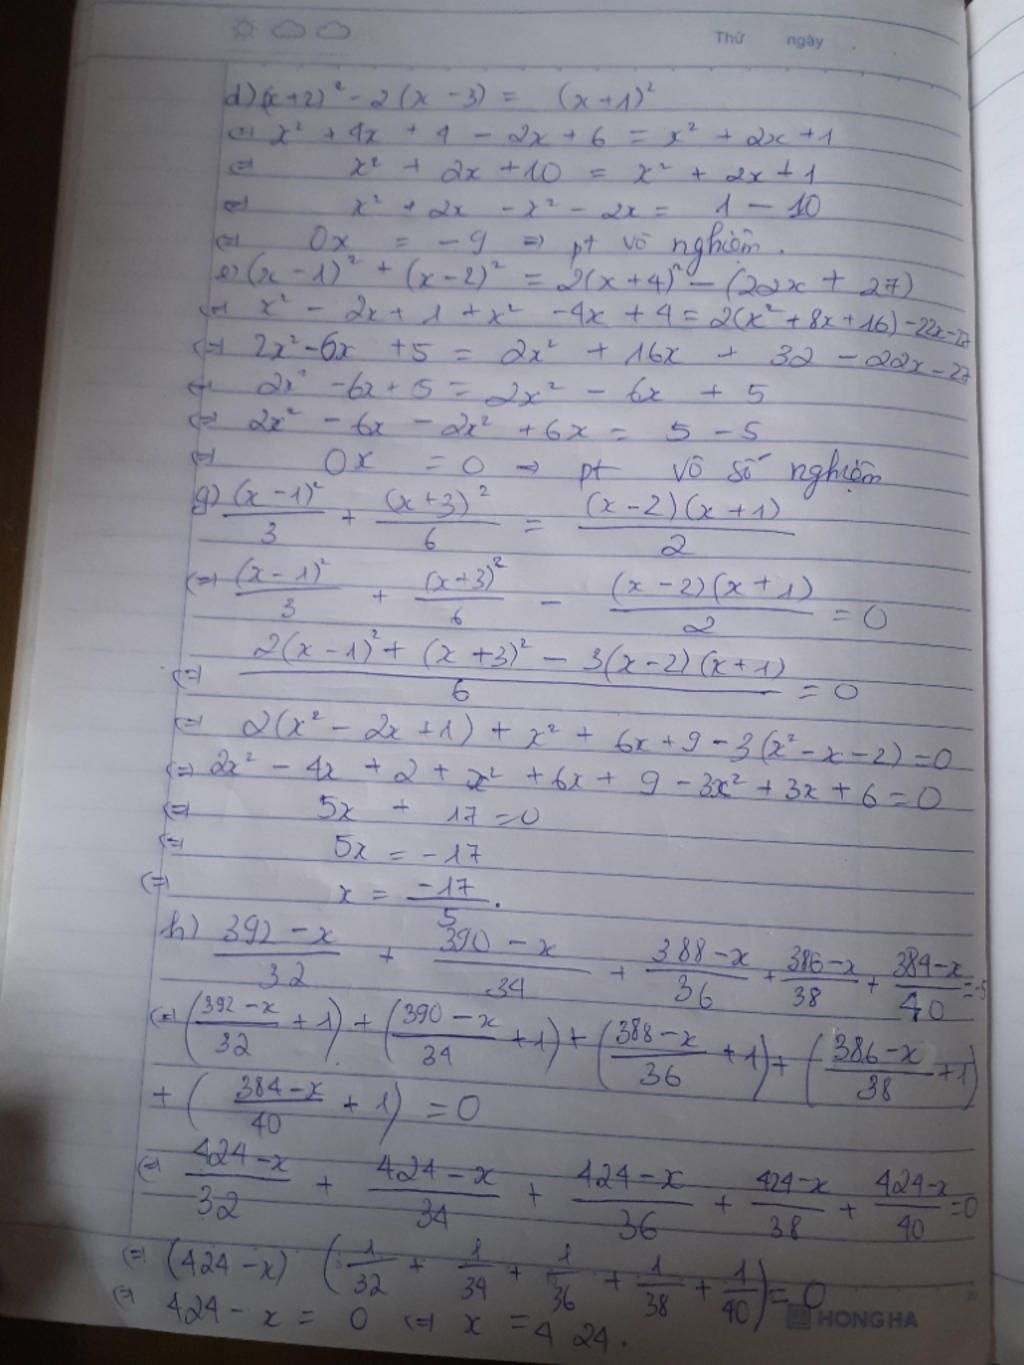 Thứ ngày
d) (x+2)² - 2(x-3) = (x+1)²
⇔ x² + 4x + 4 - 2x + 6 = x² + 2x + 1
⇔ x² + 2x + 10 = x² + 2x + 1
⇔ x² + 2x - x² - 2x = 1 - 10
⇔ 0x = -9 ⇒ pt vô nghiệm.
e) (x-1)² + (x-2)² = 2(x+4)² - (22x + 27)
⇔ x² - 2x + 1 + x² - 4x + 4 = 2(x² + 8x + 16) - 22x - 27
⇔ 2x² - 6x + 5 = 2x² + 16x + 32 - 22x - 27
⇔ 2x² - 6x + 5 = 2x² - 6x + 5
⇔ 2x² - 6x - 2x² + 6x = 5 - 5
⇔ 0x = 0 ⇒ pt vô số nghiệm
g) (x-1)²/3 + (x+3)²/6 = (x-2)(x+1)/2
⇔ (x-1)²/3 + (x+3)²/6 - (x-2)(x+1)/2 = 0
⇔ 2(x-1)² + (x+3)² - 3(x-2)(x+1)/6 = 0
⇔ 2(x² - 2x + 1) + x² + 6x + 9 - 3(x² - x - 2) = 0
⇔ 2x² - 4x + 2 + x² + 6x + 9 - 3x² + 3x + 6 = 0
⇔ 5x + 17 = 0
⇔ 5x = -17
⇔ x = -17/5.
h) 392-x/32 + 390-x/34 + 388-x/36 + 386-x/38 + 384-x/40 = -5
⇔ (392-x/32 + 1) + (390-x/34 + 1) + (388-x/36 + 1) + (386-x/38 + 1)
+ (384-x/40 + 1) = 0
⇔ 424-x/32 + 424-x/34 + 424-x/36 + 424-x/38 + 424-x/40 = 0
⇔ (424-x) (1/32 + 1/34 + 1/36 + 1/38 + 1/40) = 0
⇔ 424 - x = 0 ⇔ x = 424.
HONG HA